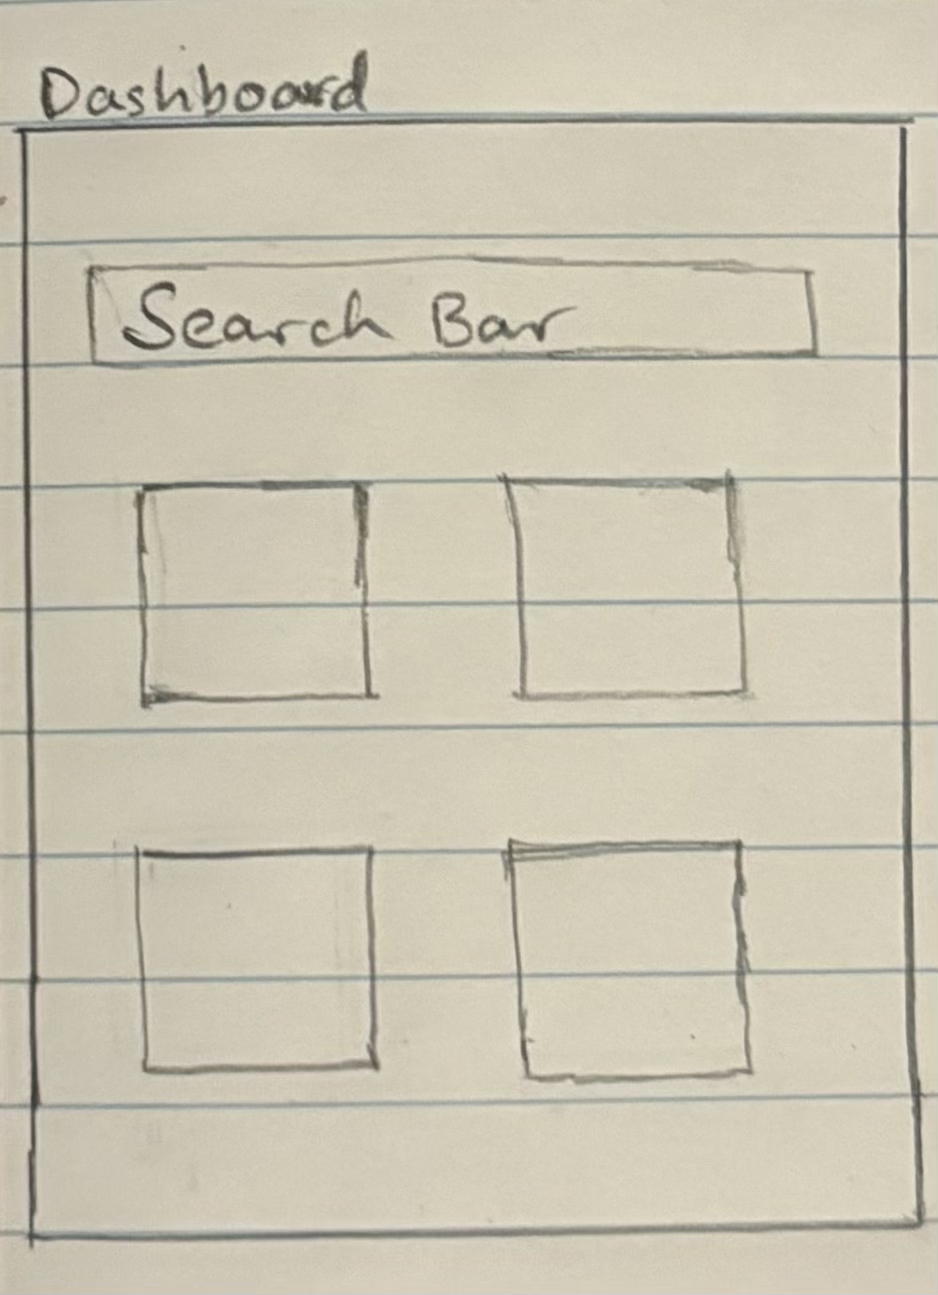 Dashboard
Search Bar